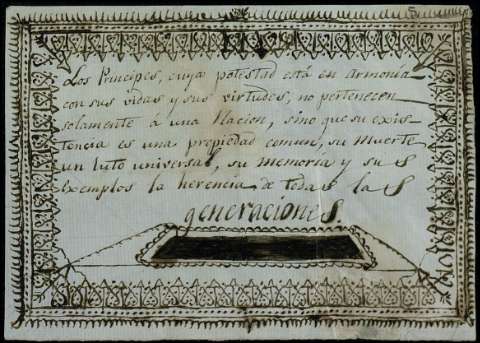 Los Principes, cuya potestad está en armonía
con sus vidas y sus virtudes, no pertenecen
solamente á una Nacion, sino que su exis
tencia es una propiedad comun, su muerte
un luto universal, su memoria y sus
exemplos la herencia de todas las
generaciones.